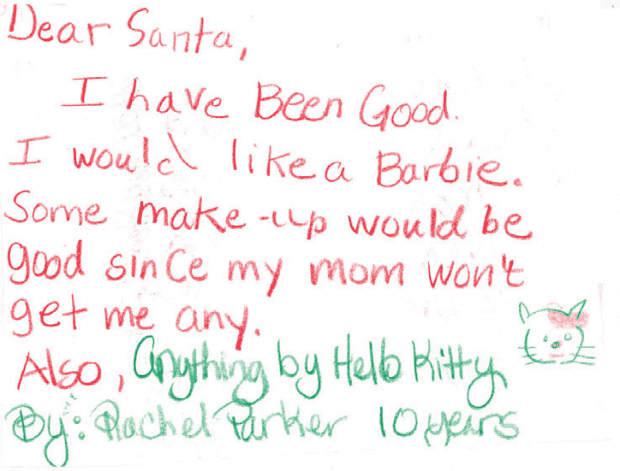 Dear Santa,
I have Been Good.
I would like a Barbie.
Some make-up would be
good since my mom won't
get me any.
Also, anything by Hello Kitty
By: Rachel Parker 10 years